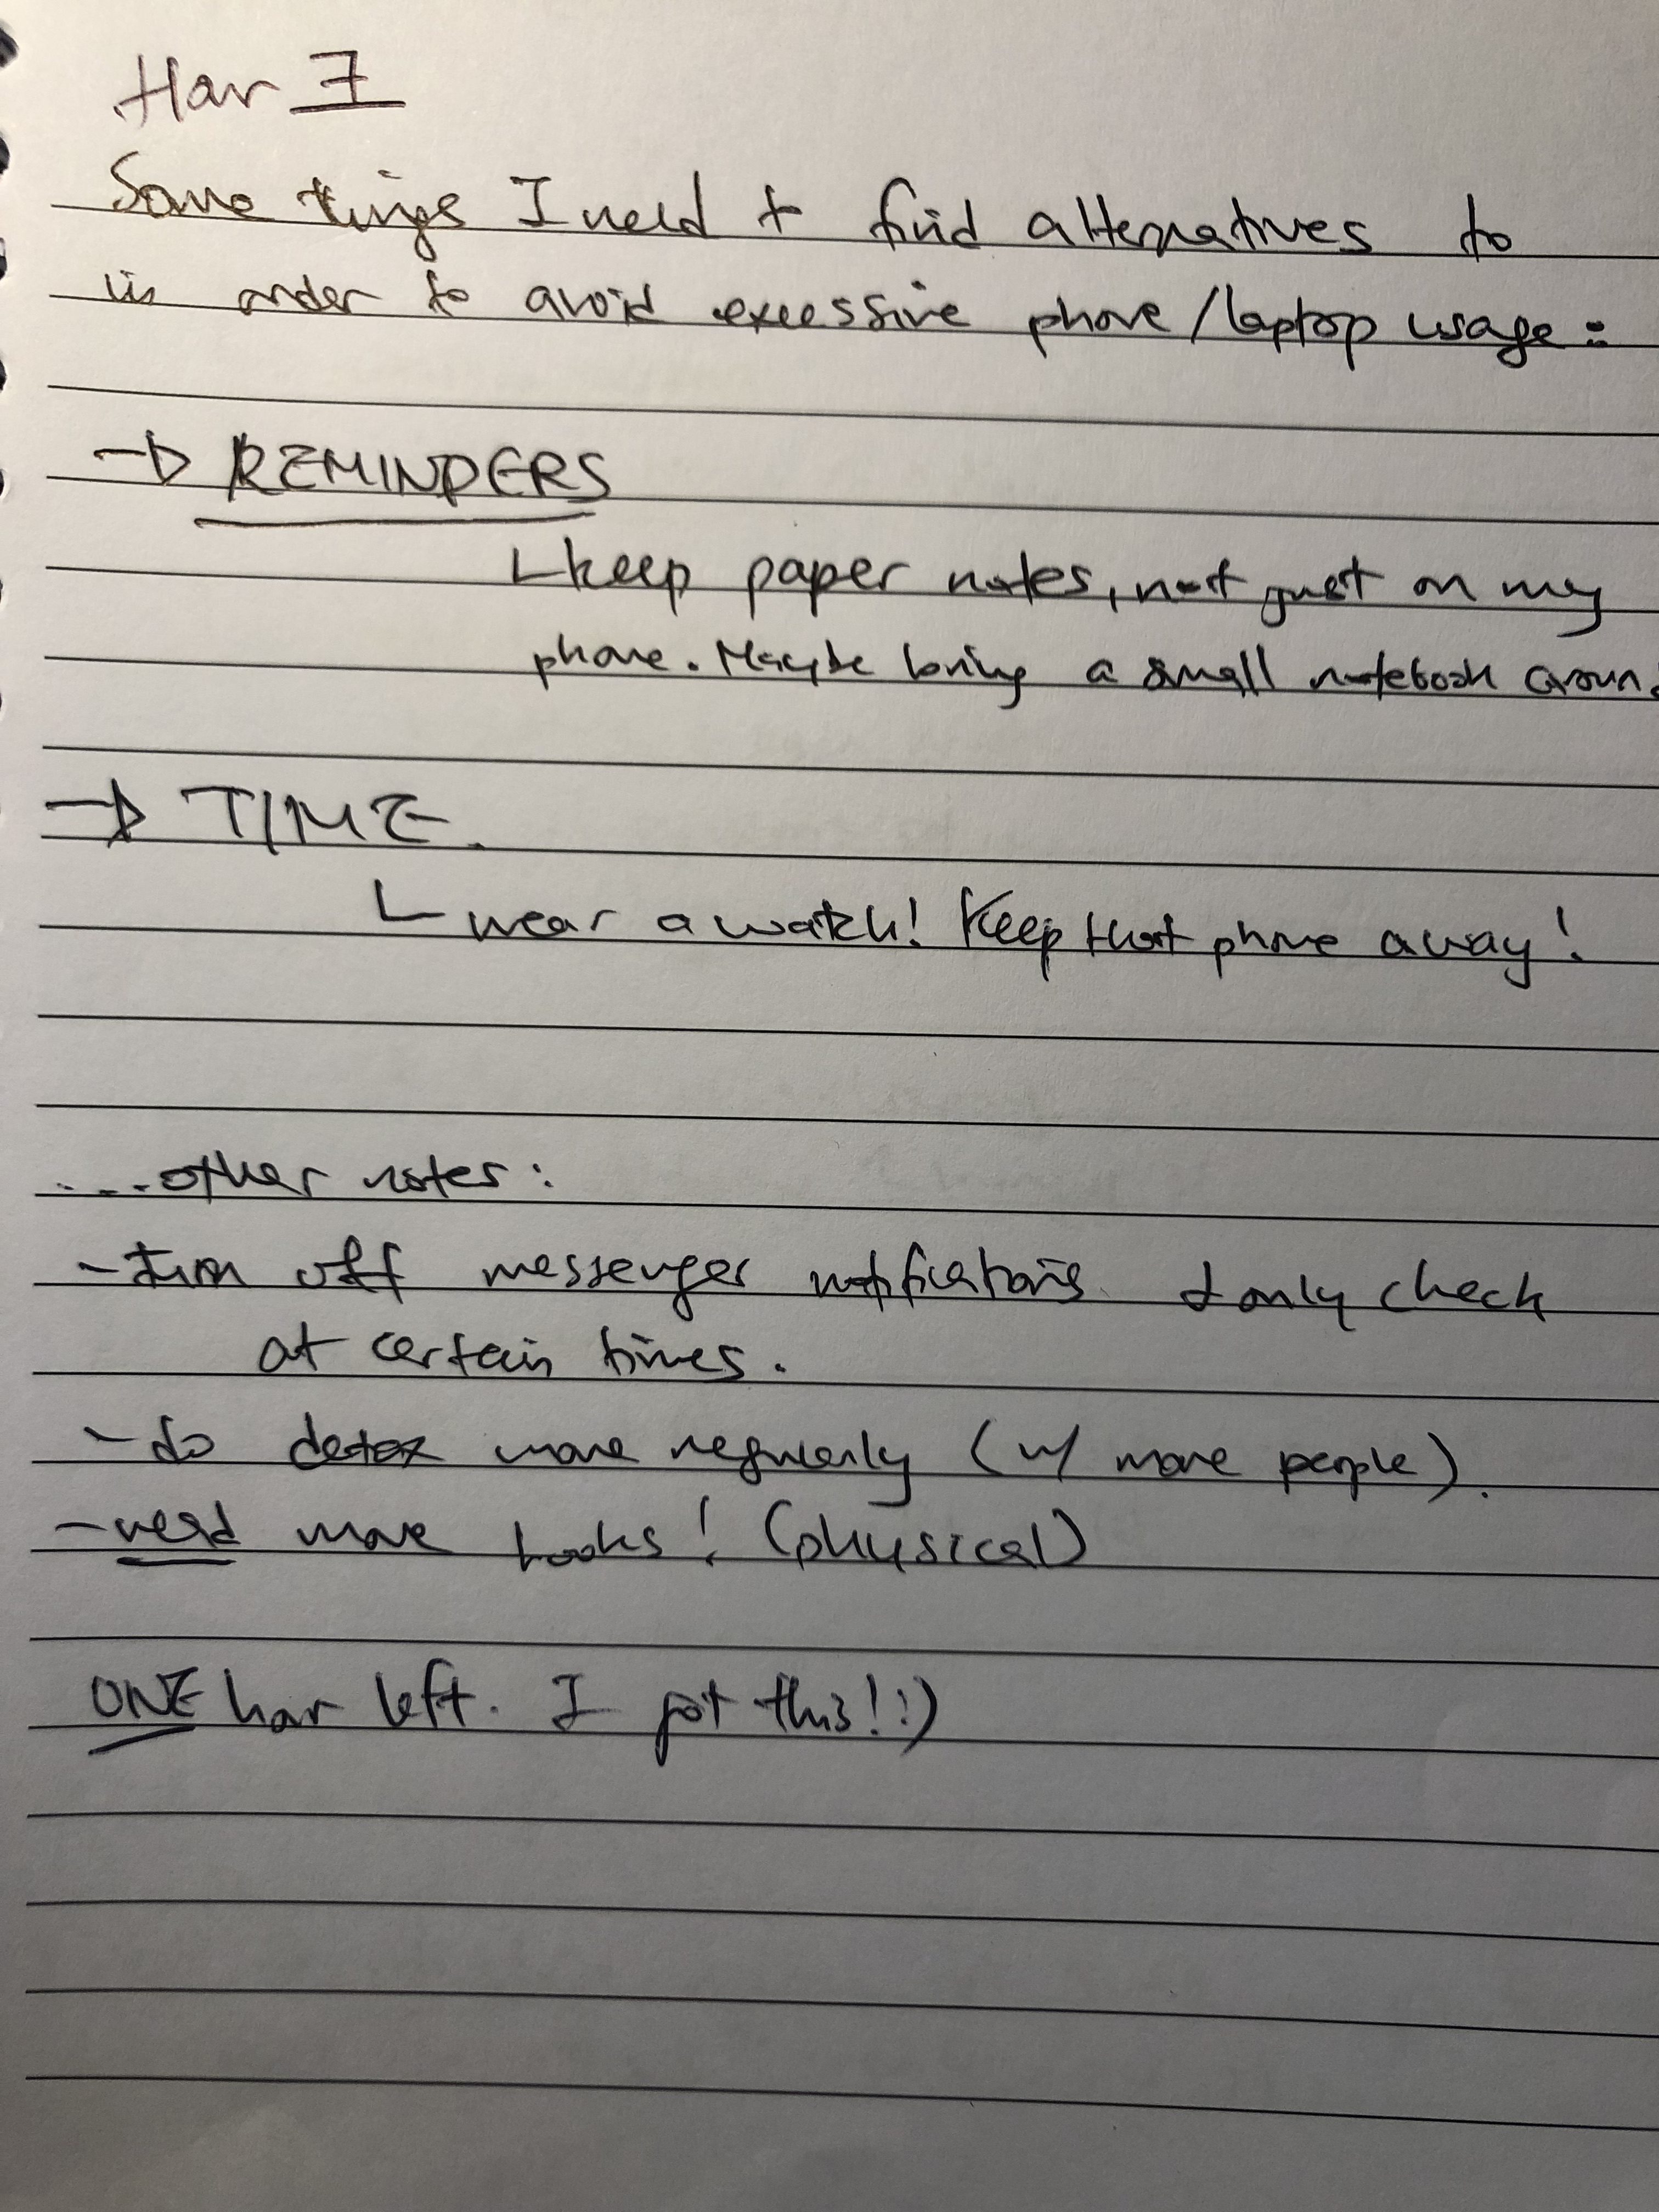 Hour 7
Some things I need to find alternatives to
in order to avoid excessive phone/laptop usage:
→ REMINDERS
keep paper notes, not just on my
phone. Maybe bring a small notebook aroun
→ TIME.
wear a watch! Keep that phone away!
....other notes:
- turn off messenger notifications & only check
at certain times.
- do detox more regularly (w/ more people).
- read more books! (physical)
ONE hour left. I got this! :)